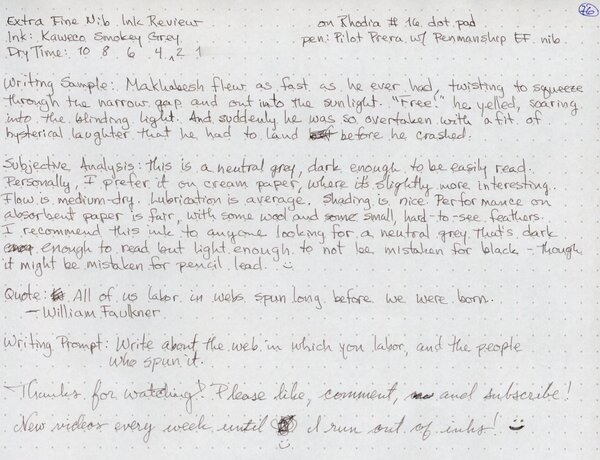 76
Extra Fine Nib Ink Review on Rhodia #16 dot pad
Ink: Kaweco Smokey Grey pen: Pilot Prera w/ Penmanship EF nib
Dry Time: 10 8 6 4 2 1
Writing Sample: Makhabesh flew as fast as he ever had, twisting to squeeze
through the narrow gap and out into the sunlight. "Free!" he yelled, soaring
into the blinding light. And suddenly he was so overtaken with a fit of
hysterical laughter that he had to land before he crashed.
Subjective Analysis: this is a neutral grey, dark enough to be easily read.
Personally, I prefer it on cream paper, where it's slightly more interesting.
Flow is medium-dry. Lubrication is average. Shading is nice. Performance on
absorbent paper is fair, with some wool and some small, hard-to-see feathers.
I recommend this ink to anyone looking for a neutral grey that's dark
enough to read but light enough to not be mistaken for black - though
it might be mistaken for pencil lead.
Quote: All of us labor in webs spun long before we were born.
- William Faulkner
Writing Prompt: Write about the web in which you labor, and the people
who spun it.
Thanks for watching! Please like, comment, and subscribe!
New videos every week until I run out of inks!